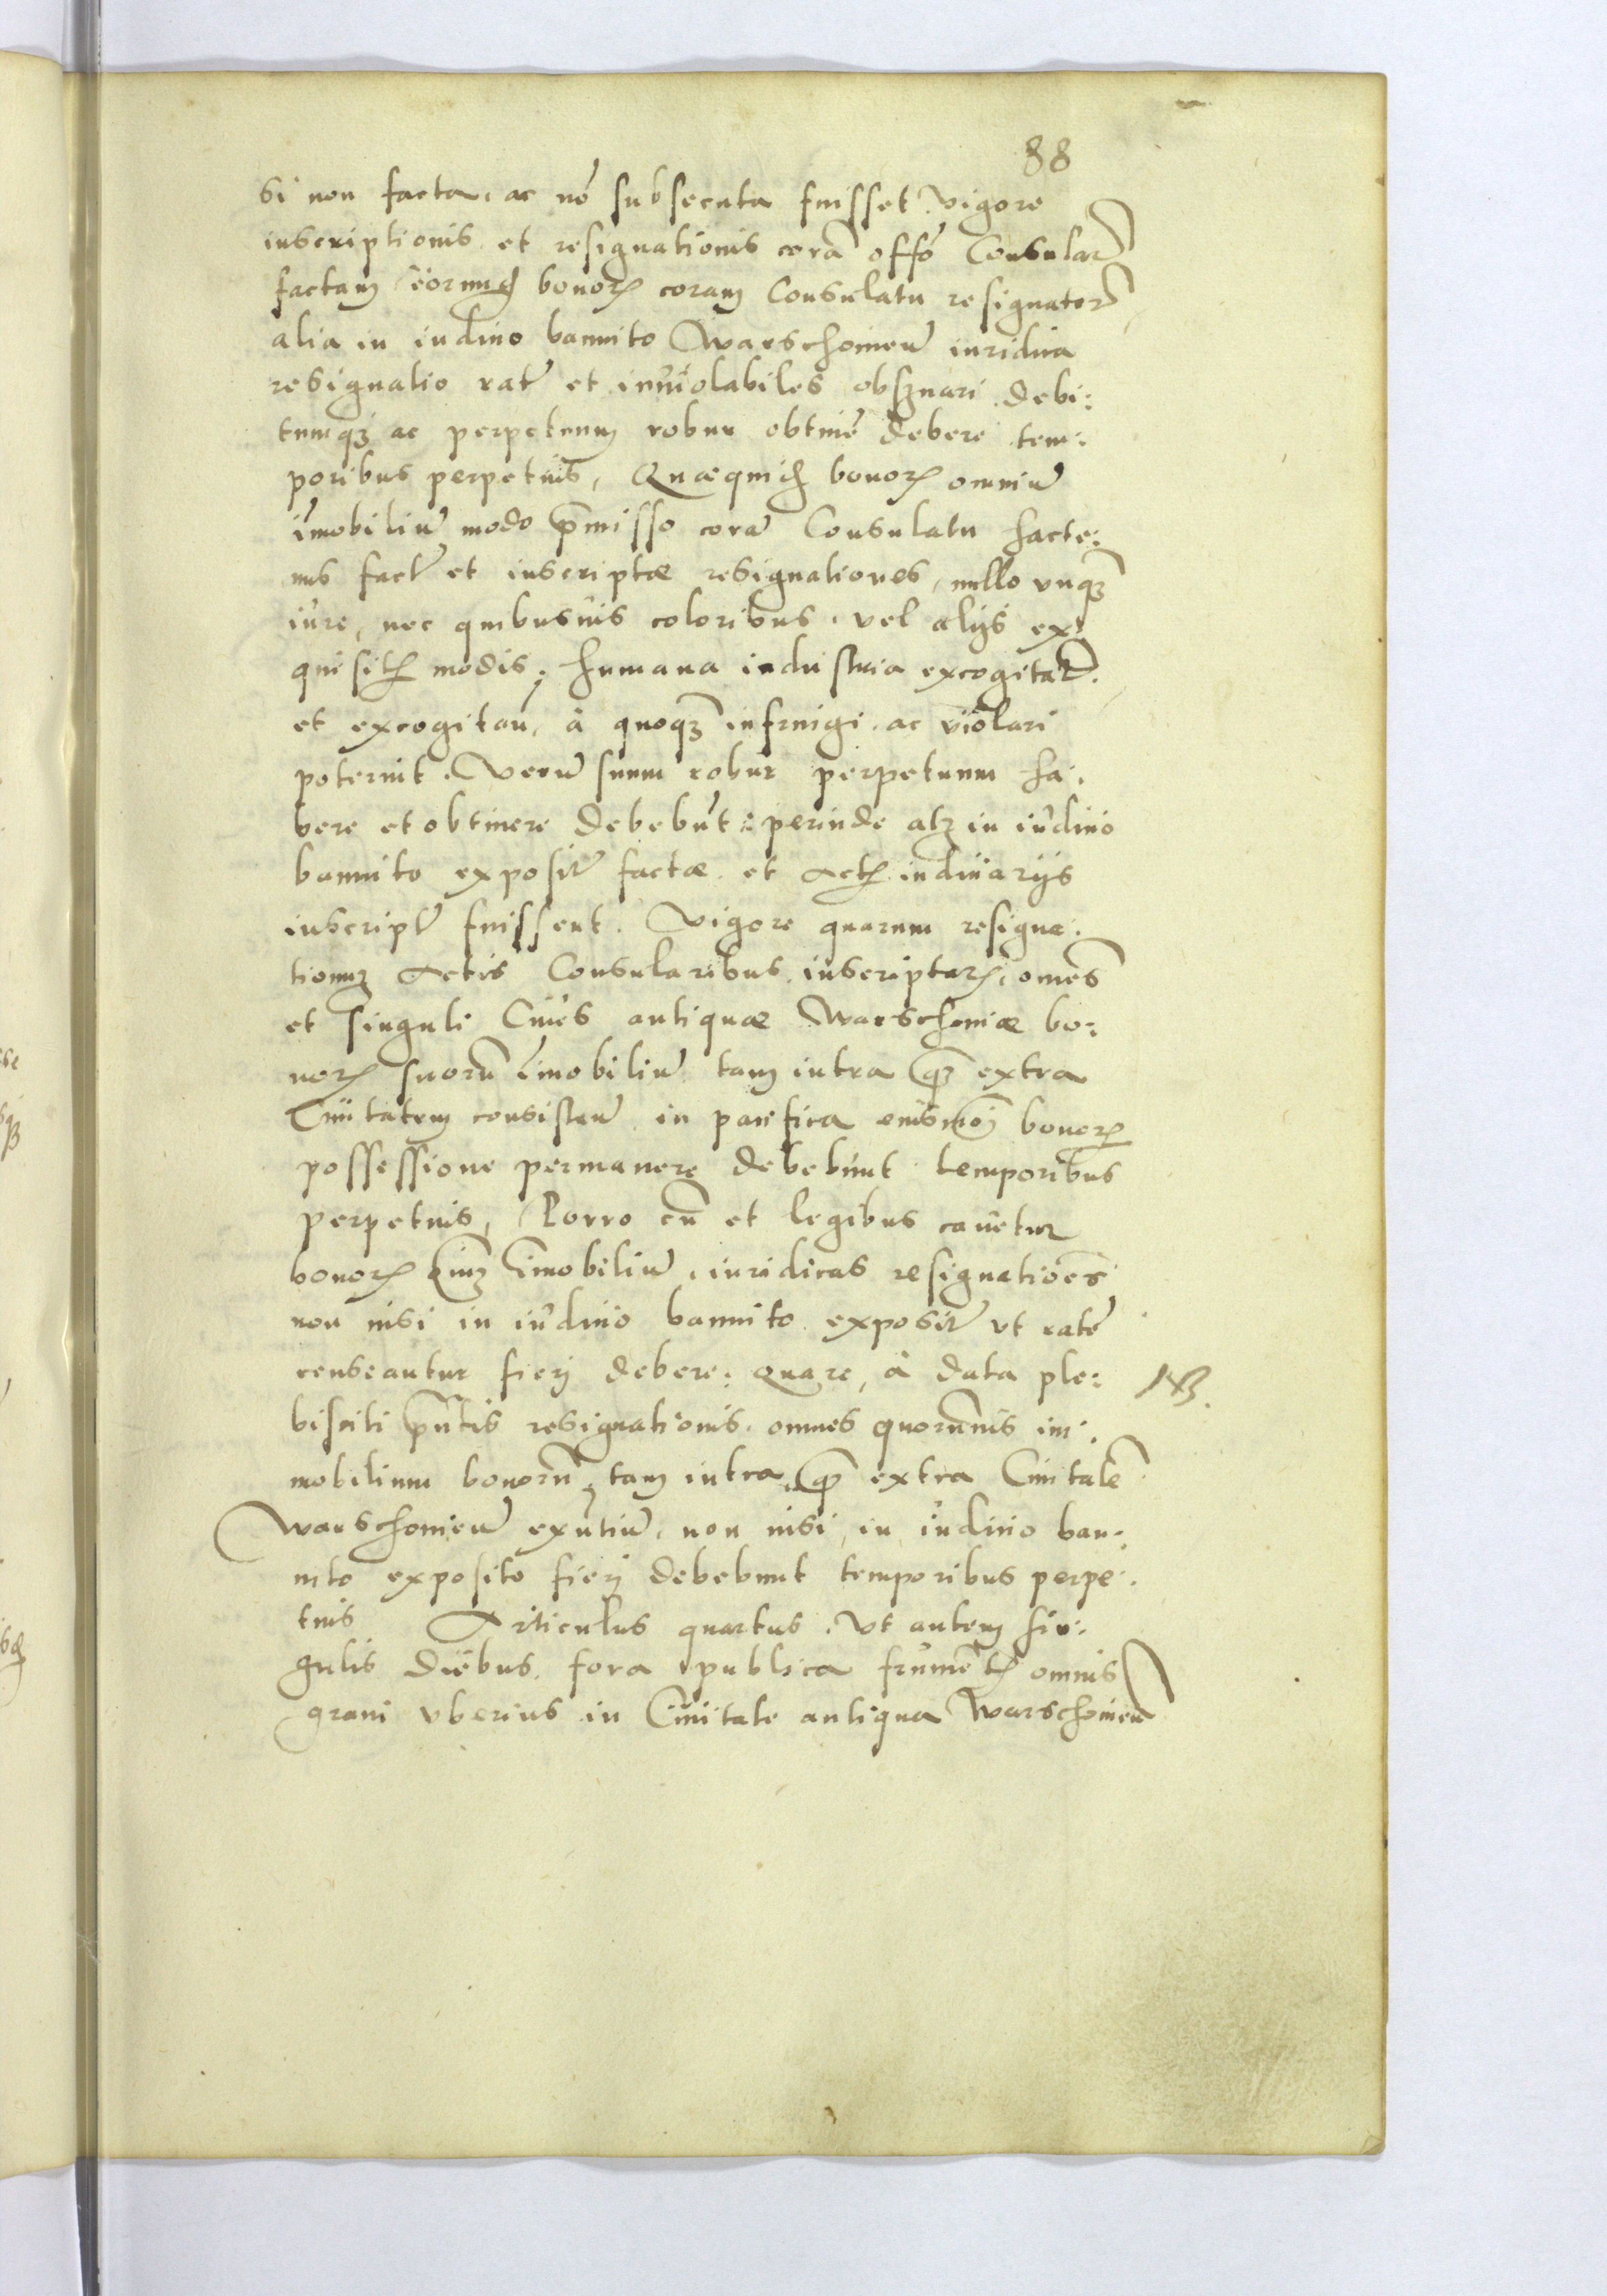 88
si non facta, ac nō subsecuta fuisset. vigore
inscriptionis et resignationis corā offō Consularī
factam eorund bonorꝝ coram Consulatu resignatorꝝ
alia in iudicio bannito Warschouien̄ iuridica
resignatio ratē et inuiolabiles obseruari debi:
tumqꝫ ac perpetuum robur obtinē debere tem:
poribus perpetuis, Quæquid bonorꝝ omniū
īmobiliū modo p̄misso corā Consulatu hacte:
nus factē et inscriptæ resignationes, nullo vnqꝫ
iure, nec quibusuis coloribus. vel alijs ex:
quisitis modis, humana industria excogitatꝭ.
et excogitan̄, à quoqꝫ infringi ac violari
poterint. Verū suum robur perpetuum ha:
bere et obtinere debebūt: perinde atqꝫ in iudicio
bannito expositē factæ et Actis iudiciarijs
inscriptē fuissent. Vigore quarum resigna:
tionū Actis Consularibus inscriptarꝝ, omēs
et singuli Ciues antiquæ Warschouiæ bo:
norꝝ suorū īmobiliū tam intra qꝫ extra
Ciuitatem consisten̄ in pacifica eiusmōi bonorꝝ
possessione permanere debebunt temporibus
perpetuis, Porro cū et legibus cauetur
bonorꝝ īmobiliū, iuridicas resignatiōēs
non nisi in iudicio bannito expositē vt ratē
censeantur fierj debere: quare, à data ple:
NB.
bisciti p̄ntis resignationis. omnes quorūuis im:
mobilium bonorū, tam intra, qꝫ extra Ciuitatē
Warschouien̄ exn̄tiū, non nisi, in iudicio ban:
nito exposito fierj debebunt temporibus perpe:
tuis Articulus quartus. Vt autem sin:
gulis diebus fora publica frumēti omnis
grani vberius in Ciuitate antiqua Warschouien̄